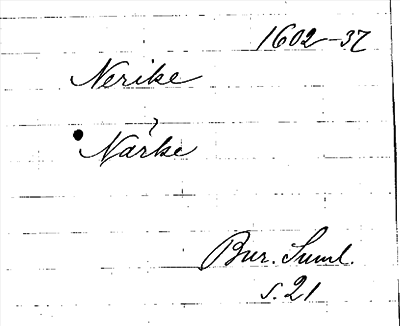 1602-37
Nerike
Närke
Bur. Suml.
s. 21